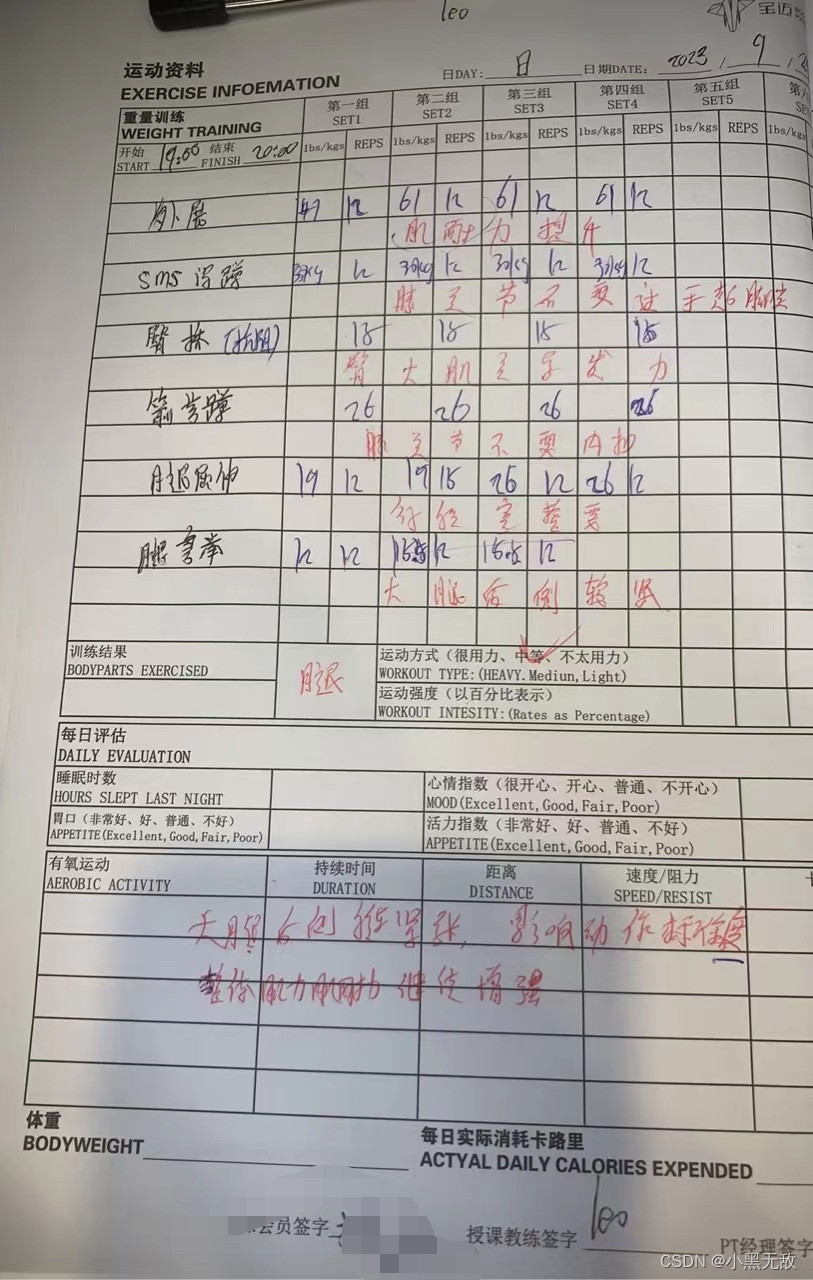 leo
运动资料 日DAY: 日 日期DATE: 2023 / 9 /
EXERCISE INFOEMATION
重量训练 第一组 第二组 第三组 第四组 第五组
WEIGHT TRAINING SET1 SET2 SET3 SET4 SET5
开始 结束 lbs/kgs REPS lbs/kgs REPS lbs/kgs REPS lbs/kgs REPS lbs/kgs REPS lbs/kgs
START 19:00 FINISH 20:00
外展 47 12 61 12 61 12 61 12
肌耐力提升
SMS 深蹲 30kg 12 30kg 12 30kg 12 30kg 12
膝关节不要过于超脚尖
臀推 15 15 15 15
臀大肌主导发力
箭步蹲 26 26 26 26
膝关节不要内扣
腿屈伸 19 12 19 15 26 12 26 12
行程完整
腿弯举 12 12 15.5 12 15.5 12
大腿后侧较紧
训练结果
BODYPARTS EXERCISED
腿
运动方式（很用力、中等、不太用力）
WORKOUT TYPE:(HEAVY.Mediun,Light)
运动强度（以百分比表示）
WORKOUT INTESITY:(Rates as Percentage)
每日评估
DAILY EVALUATION
睡眠时数 心情指数（很开心、开心、普通、不开心）
HOURS SLEPT LAST NIGHT MOOD(Excellent,Good,Fair,Poor)
胃口（非常好、好、普通、不好） 活力指数（非常好、好、普通、不好）
APPETITE(Excellent,Good,Fair,Poor) APPETITE(Excellent,Good,Fair,Poor)
有氧运动 持续时间 距离 速度/阻力
AEROBIC ACTIVITY DURATION DISTANCE SPEED/RESIST
大腿后侧较紧张，影响动作标准度
整体肌力肌耐力继续增强
体重 每日实际消耗卡路里
BODYWEIGHT ACTYAL DAILY CALORIES EXPENDED
会员签字 授课教练签字 leo PT经理签字
CSDN @小黑无敌